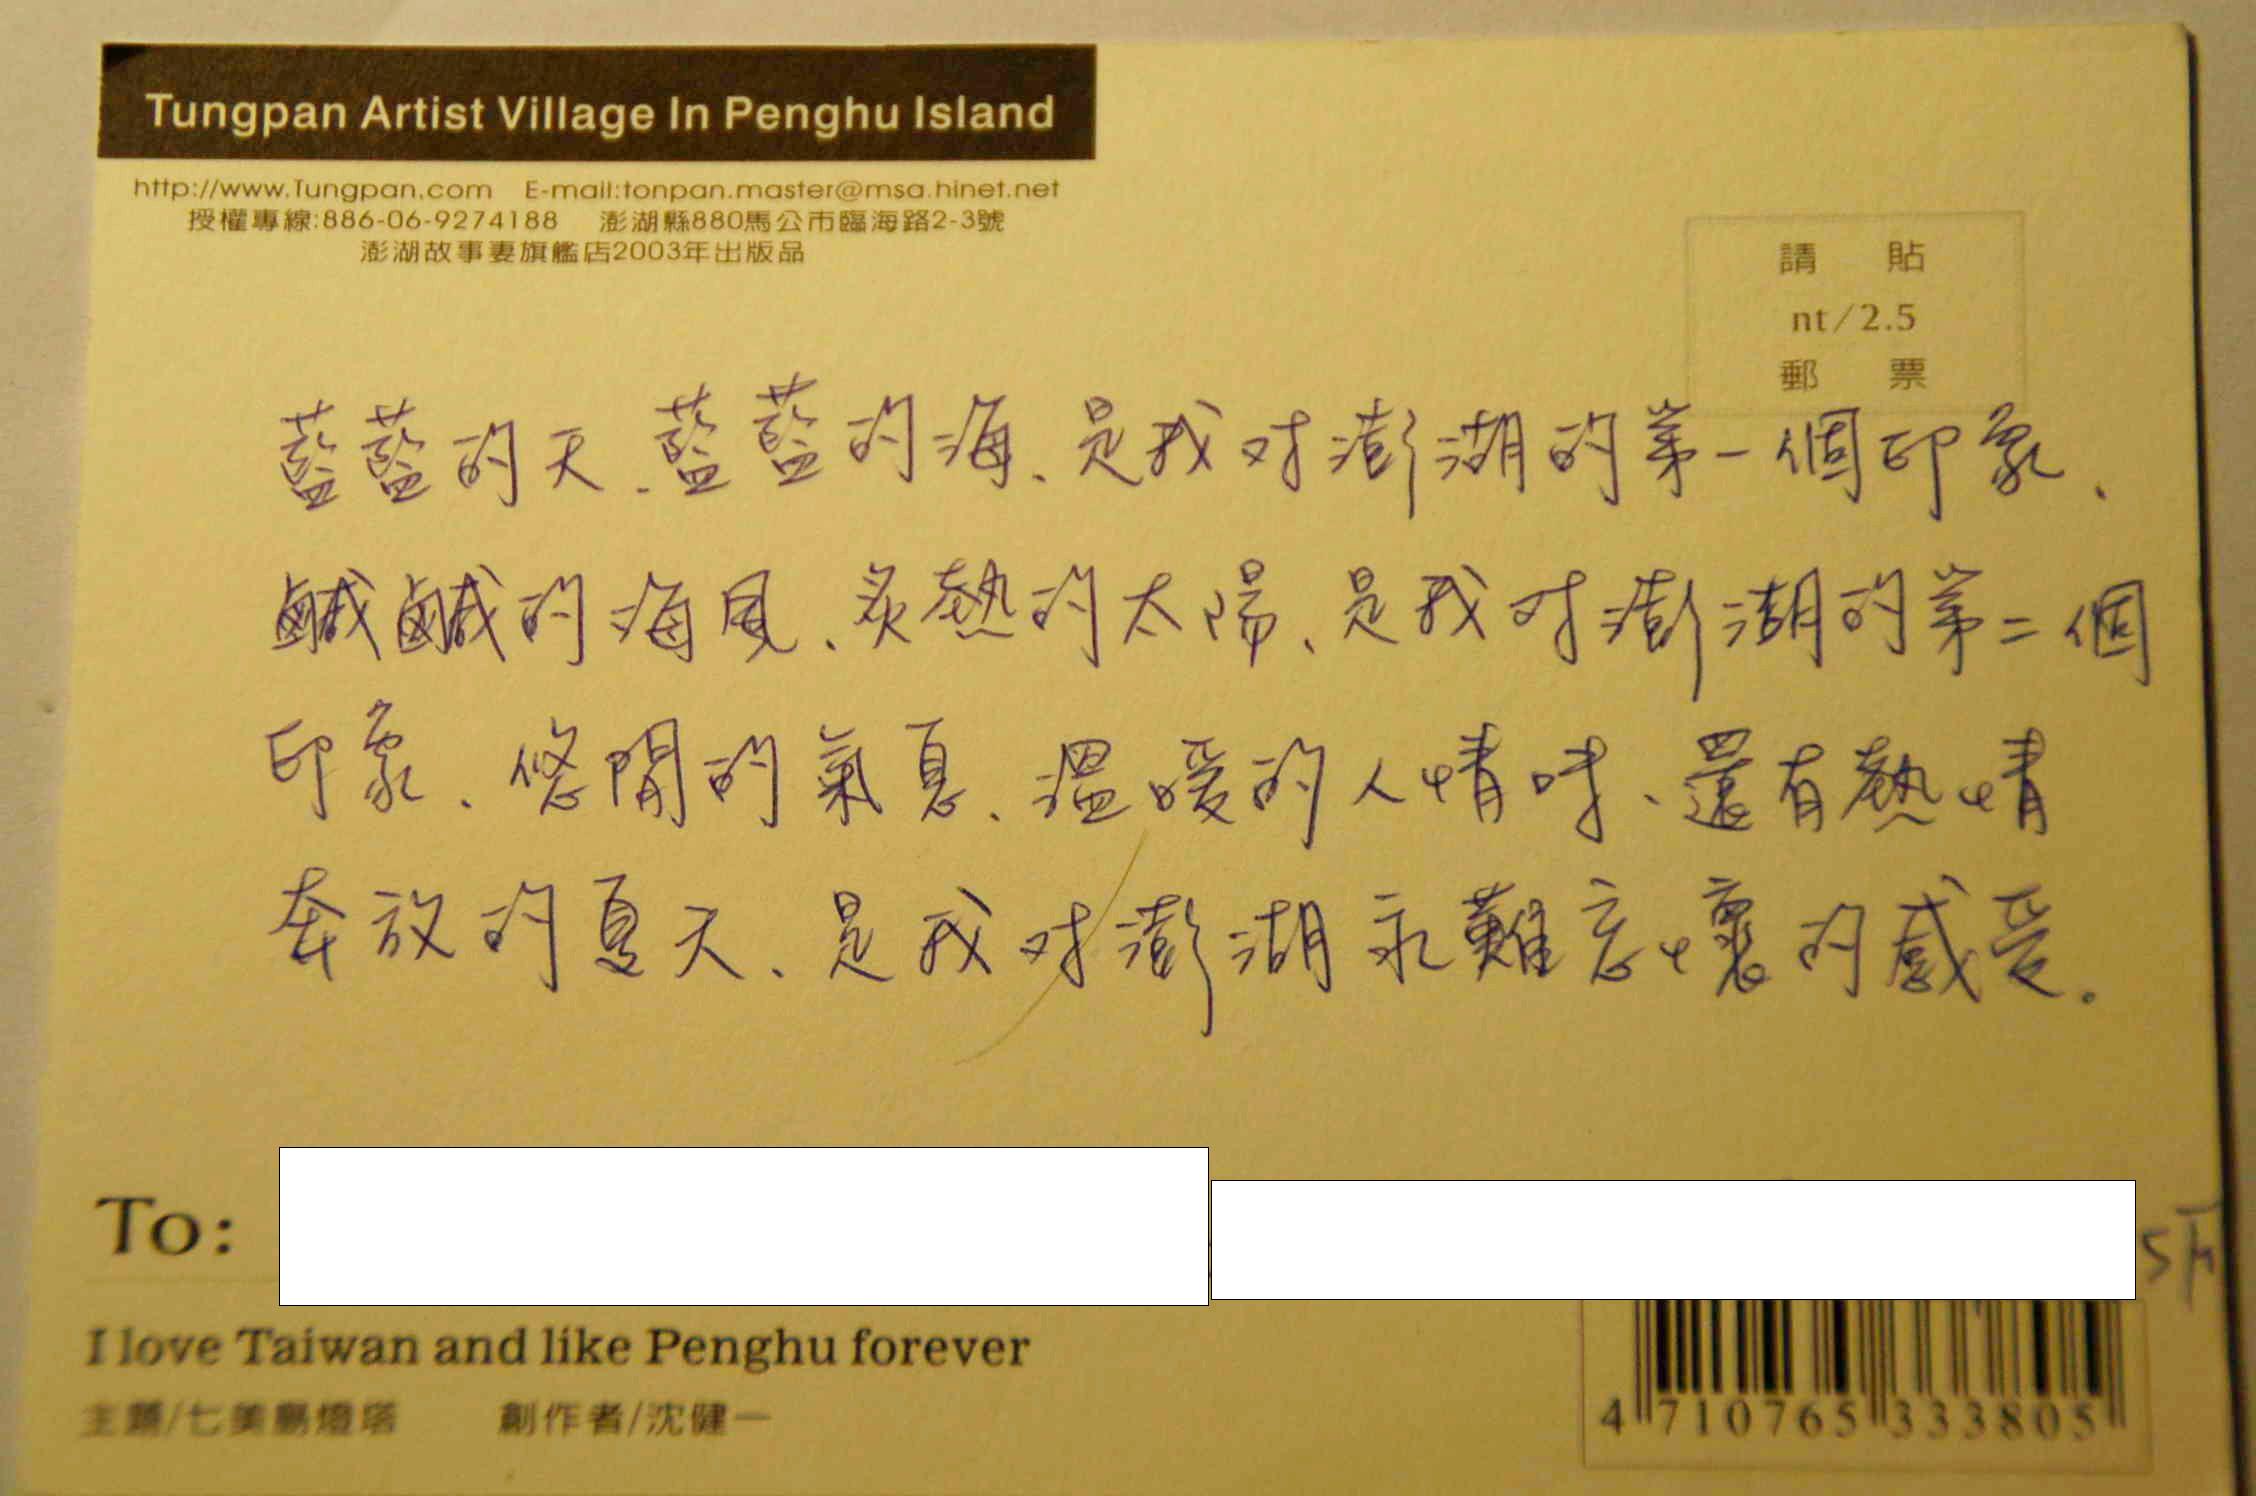 Tungpan Artist Village In Penghu Island
http://www.Tungpan.com E-mail:tonpan.master@msa.hinet.net
授權專線:886-06-9274188 澎湖縣880馬公市臨海路2-3號
澎湖故事妻旗艦店2003年出版品
請 貼
nt/2.5
郵 票
藍藍的天、藍藍的海、是我对澎湖的第一個印象、
鹹鹹的海風、炙熱的太陽、是我对澎湖的第二個
印象、悠閒的氣息、溫暖的人情味、還有熱情
奔放的夏天、是我对澎湖永難忘懷的感受。
To:
5F
I love Taiwan and like Penghu forever
主題/七美島燈塔 創作者/沈健一
4 710765 333805